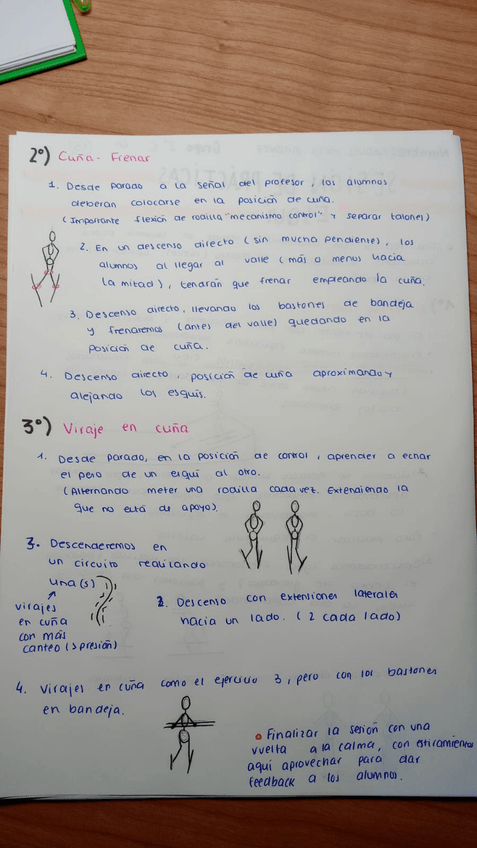 2º) Cuña - Frenar
1. Desde parado a la señal del profesor, los alumnos
deberán colocarse en la posición de cuña.
(Importante flexión de rodilla "mecanismo control" y separar talones)
2. En un descenso directo (sin mucha pendiente), los
alumnos al llegar al valle (más o menos hacia
la mitad), tendrán que frenar empleando la cuña.
3. Descenso directo, llevando los bastones de bandeja
y frenaremos (antes del valle) quedando en la
posición de cuña.
4. Descenso directo, posición de cuña aproximando y
alejando los esquís.
3º) Viraje en cuña
1. Desde parado, en la posición de control, aprender a echar
el peso de un esquí al otro.
(Alternando meter una rodilla cada vez. Extendiendo la
que no está de apoyo).
3. Descenderemos en
un circuito realizando
una(s)
virajes
en cuña
con más
canteo (> presión)
2. Descenso con extensiones laterales
hacia un lado. (2 cada lado)
4. Virajes en cuña como el ejercicio 3, pero con los bastones
en bandeja.
Finalizar la sesión con una
vuelta a la calma, con estiramientos
aquí aprovechar para dar
feedback a los alumnos.